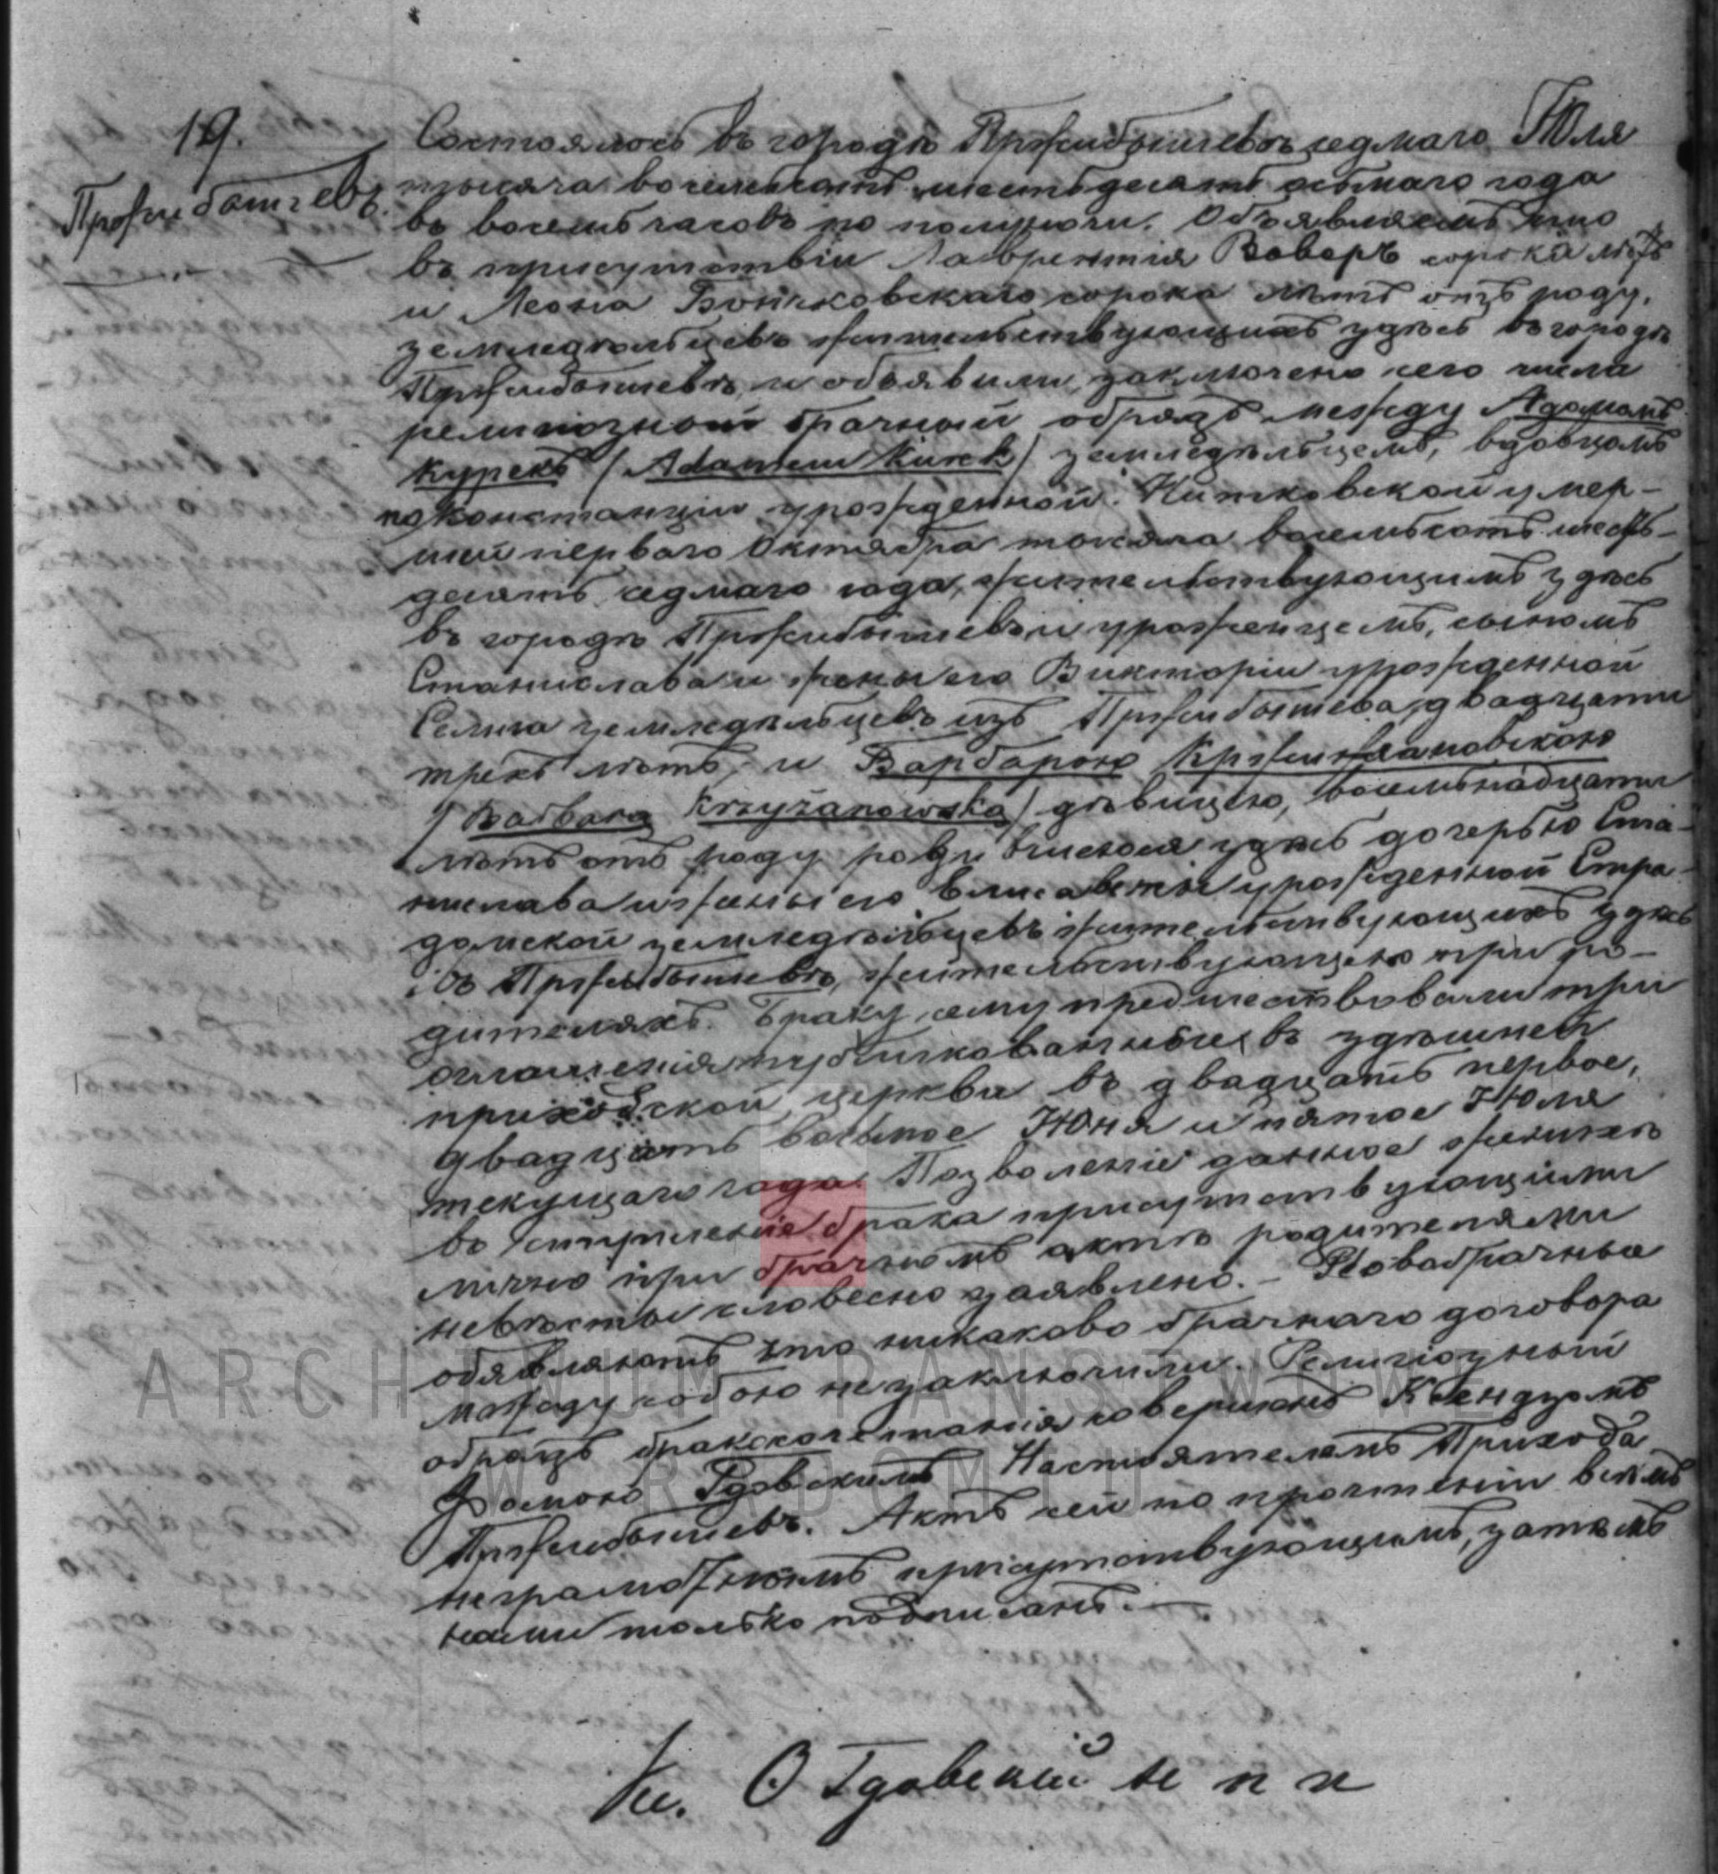 19.
Пржибышевъ.
Состоялось въ городѣ Пржибышевѣ седмаго Іюля
тысяча восемьсотъ шестьдесятъ осьмаго года
въ восемь часовъ по полуночи. Объявляемъ что
въ присутствіи Лаврентія Боберъ сорока лѣтъ
и Леона сорока лѣтъ отъ роду,
земледѣльцевъ жительствующихъ здѣсь въ городѣ
Пржибышевѣ, и объявили, заключено сего числа
религіозный брачный обрядъ между Адамомъ
Курекъ (Adamem Kurek) земледѣльцемъ, вдовцомъ
по Констанціи урожденной умер-
шей перваго Октября тысяча восемьсотъ шесть-
десятъ седмаго года, жительствующимъ здѣсь
въ городѣ Пржибышевѣ и уроженцемъ, сыномъ
Станислава и жены его Викторіи урожденной
земледѣльцевъ изъ Пржибышева, двадцати
трехъ лѣтъ, и Барбарою Кржижановскою
(Barbarą Krzyżanowską) дѣвицею, восемьнадцати
лѣтъ отъ роду родившеюся здѣсь дочерью Ста-
нислава и жены его Елисаветы урожденной Стра-
домской земледѣльцевъ жительствующихъ здѣсь
въ Пржибышевѣ, жительствующею при ро-
дителяхъ. Браку сему предшествовали три
оглашенія публикованныя въ здѣшней
приходской церкви въ двадцать первое,
двадцать восьмое Іюня и пятое Іюля
текущаго года. Позволеніе данное
въ вступленіе брака присутствующими
лично при брачномъ актѣ родителями
невѣсты словесно заявлено. – Новобрачные
объявляютъ что никаково брачнаго договора
между собою не заключили. Религіозный
обрядъ бракосочетанія совершонъ Ксендзомъ
Гдовскимъ Настоятелемъ Прихода
Пржибышевъ. Актъ сей по прочтеніи всѣмъ
неграмотнымъ присутствующимъ, затѣмъ
нами только подписанъ. —
Кс. О Гдовскій н п п
ARCHIWUM PAŃSTWOWE
W RADOMIU